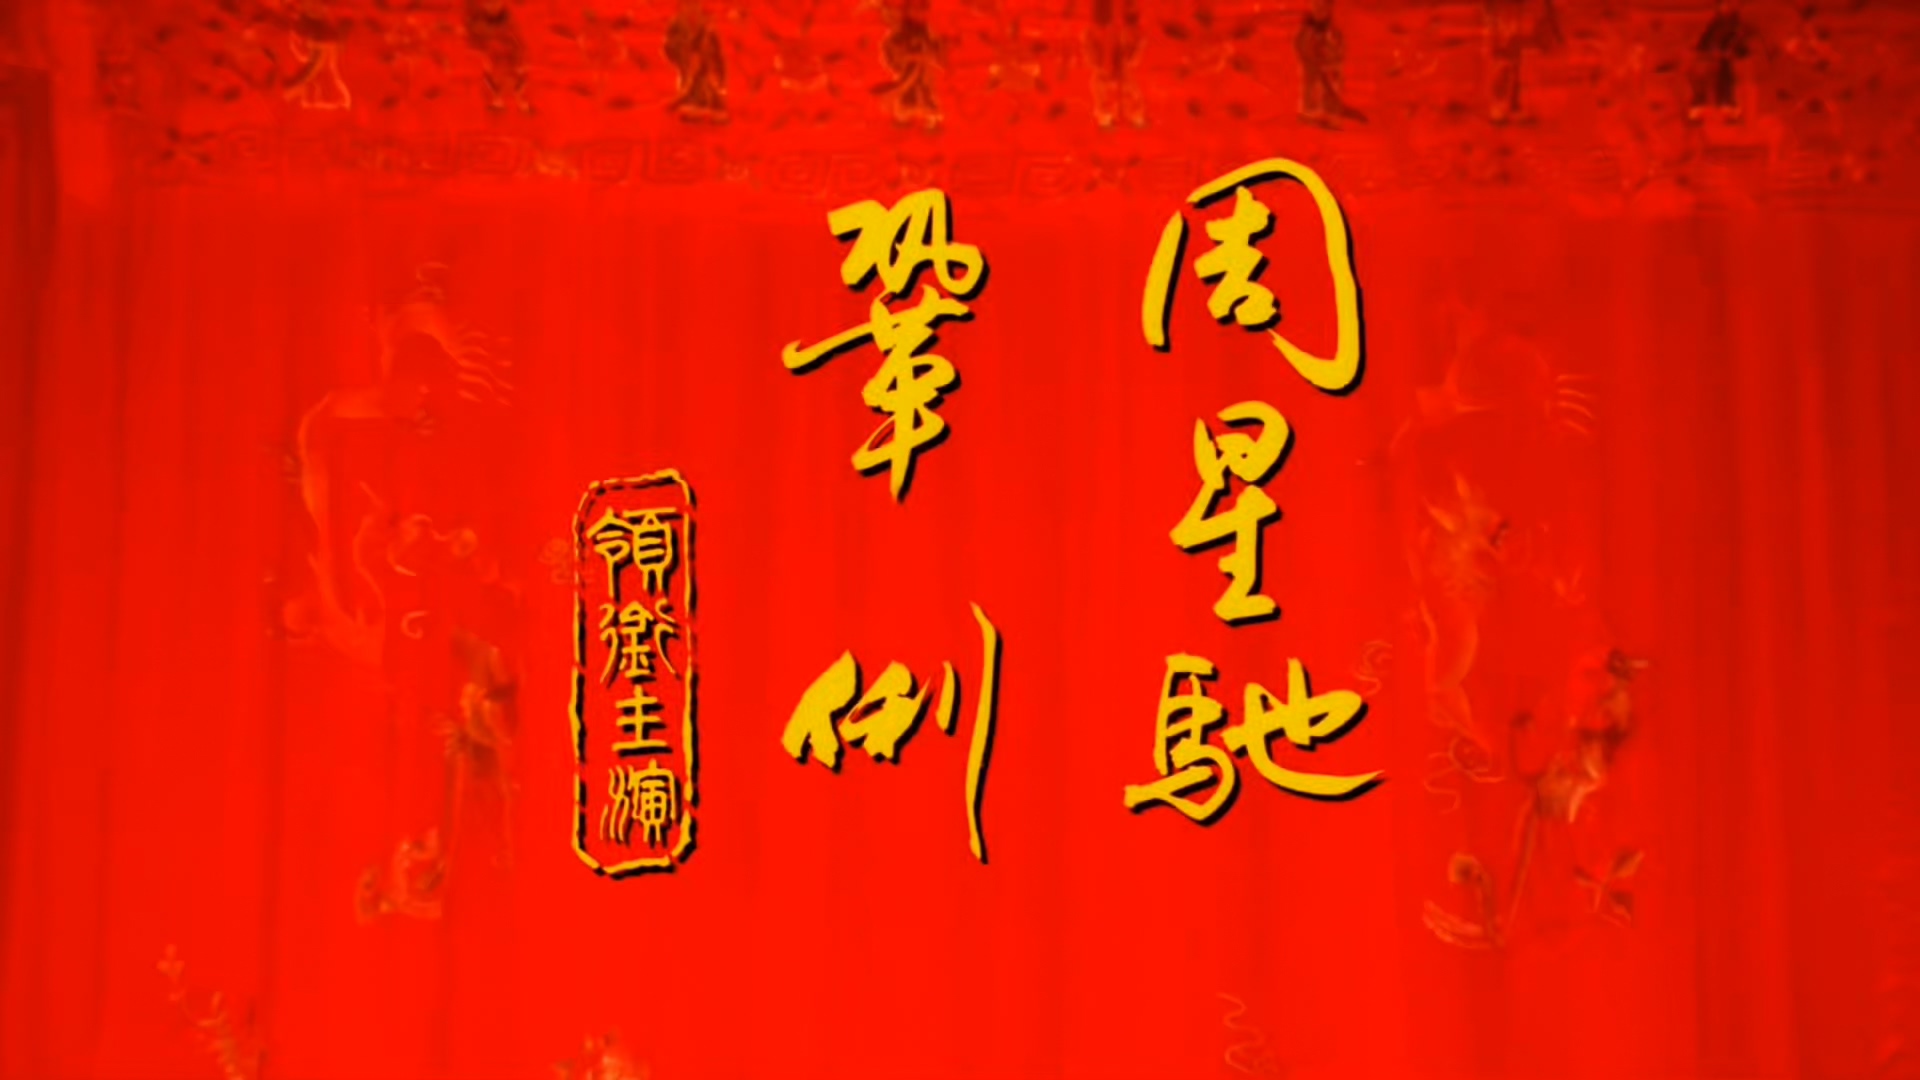 周星馳
鞏俐
領銜主演